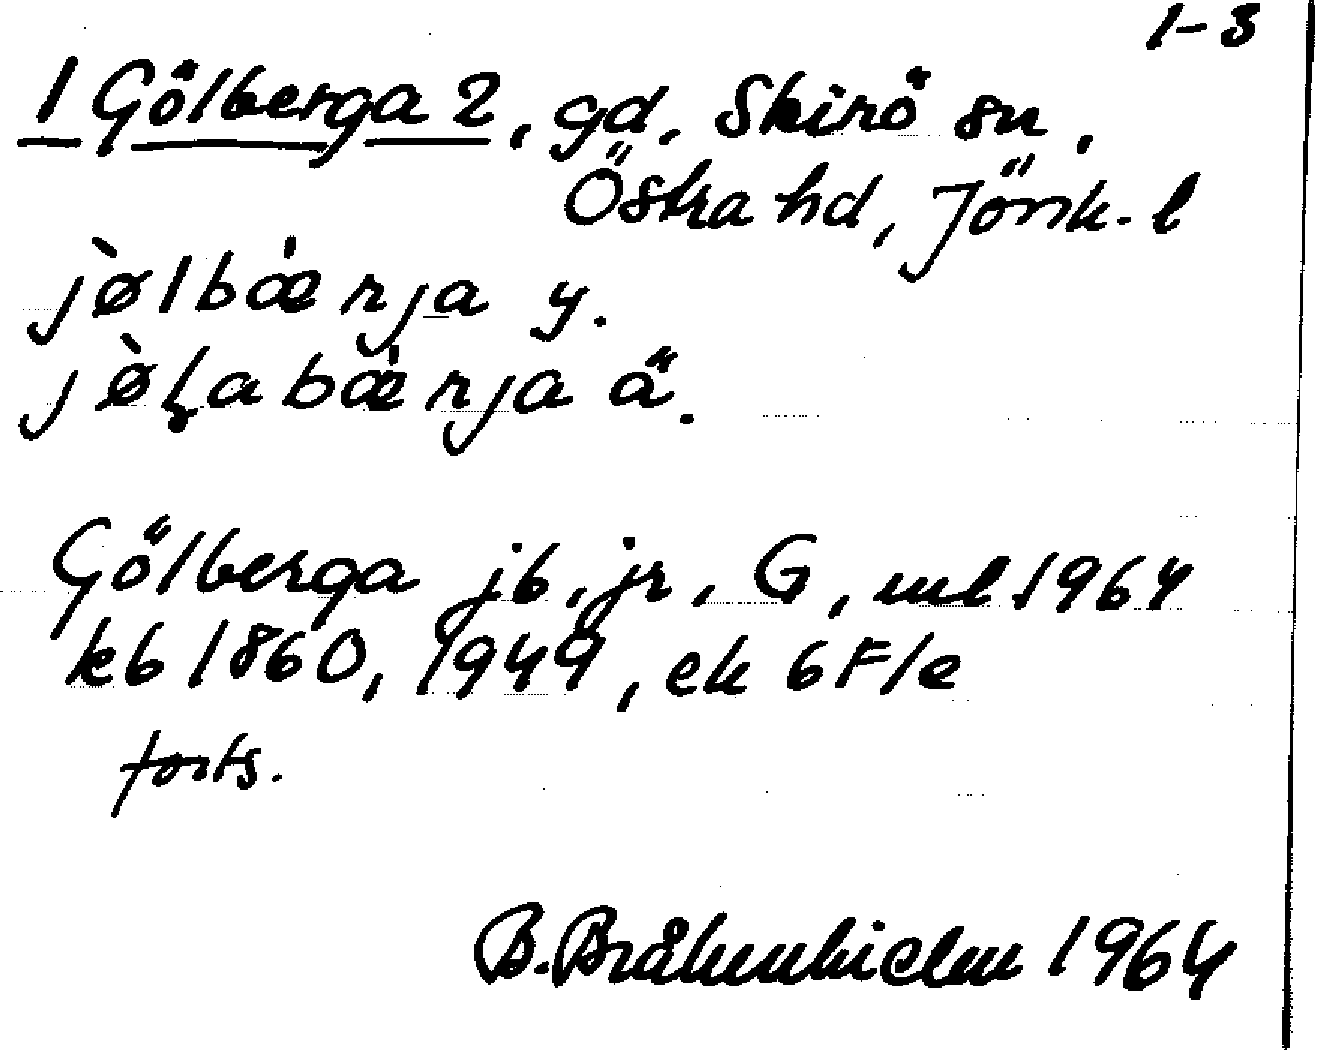 1-3
1 Gölberga 2, gd, Skirö sn,
Östra hd, Jönk. l
jø̀lbæ̀rja y.
jø̀ɽabæ̀rja ä.
Gölberga jb, jr, G, ml 1964
kb 1860, 1949, ek 6F1e
forts.
B. Bråkenhielm 1964